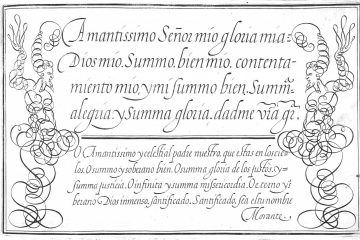 Amantissimo Señor mio gloria mia
Dios mio. Summo bien mio. contenta-
miento mio, y mi summo bien, Summa
alegria: y Summa gloria. dadme vr̃a gr̃a.
O Amantissimo y celestial padre nuestro, que estas en los cie-
los. O summo y soberano bien. O summa gloria de los justos, y
summa justicia. O infinita y summa misericordia. O eterno y so-
berano Dios inmenso, santificado. Santificado, sea el tu nombre
Morante.